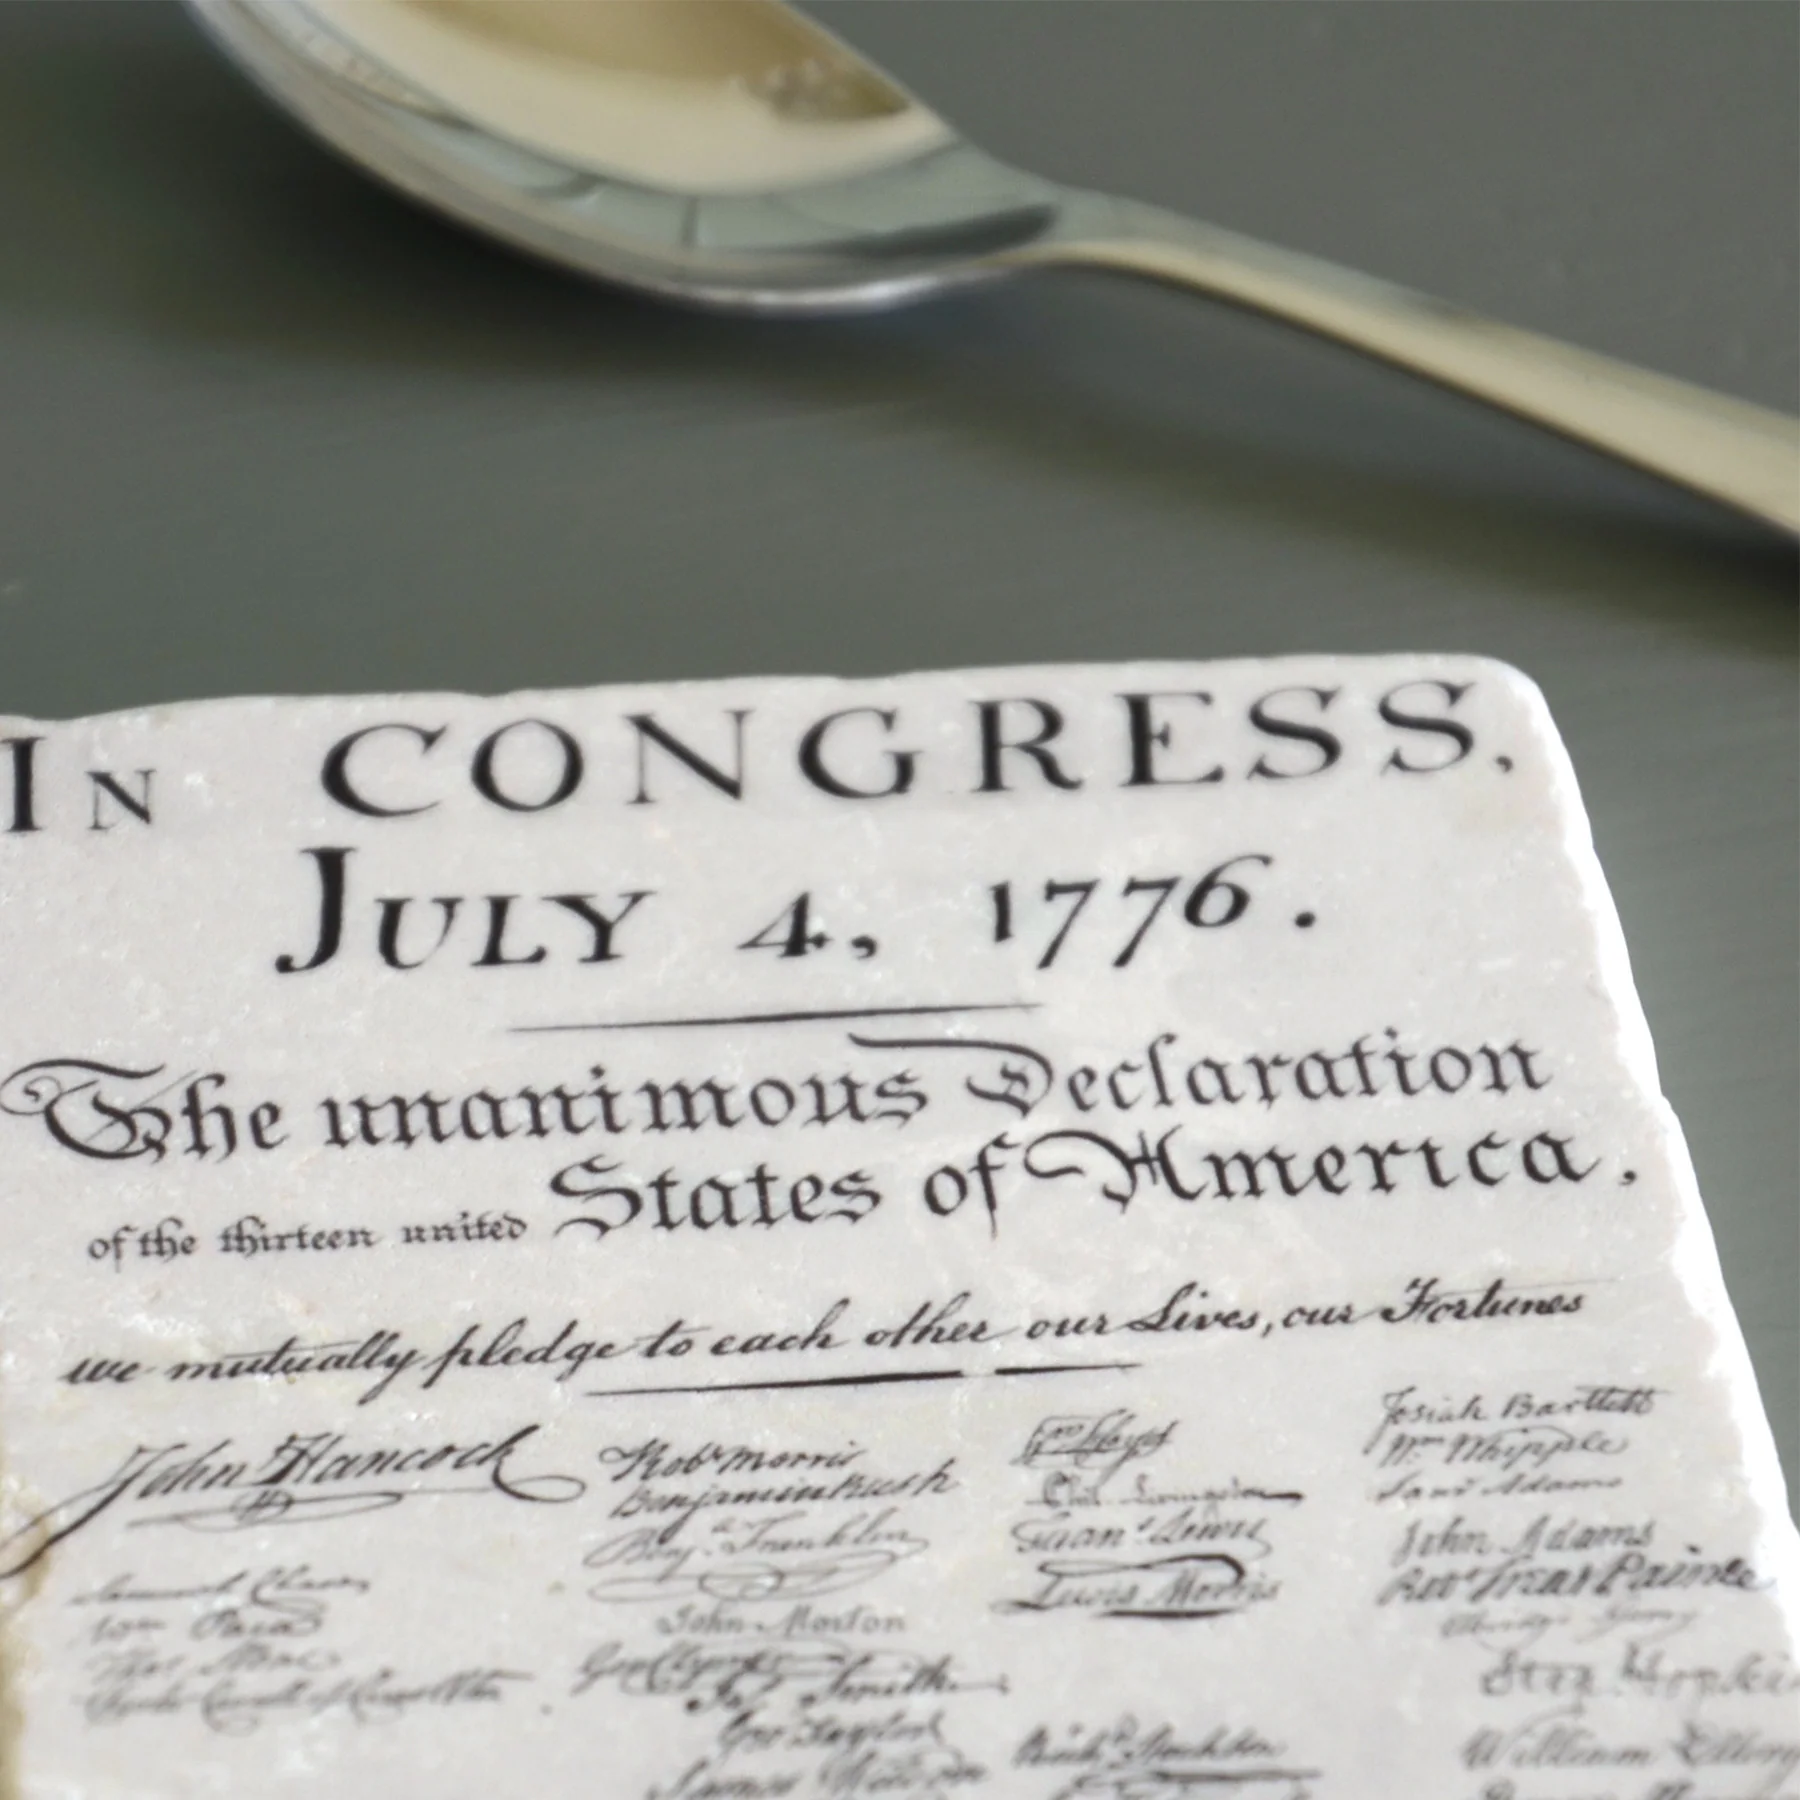 IN CONGRESS,
JULY 4, 1776.
The unanimous Declaration
of the thirteen united States of America.
we mutually pledge to each other our Lives, our Fortunes
John Hancock
Samuel Chase
Wm Paca
Robt Morris
Benjamin Rush
Benj. Franklin
John Morton
Jas Smith
Geo Taylor
James Wilson
Wm Floyd
Phil. Livingston
Frans. Lewis
Lewis Morris
Richd. Stockton
Josiah Bartlett
Wm Whipple
Saml Adams
John Adams
Robt Treat Paine
Elbridge Gerry
Step. Hopkins
William Ellery